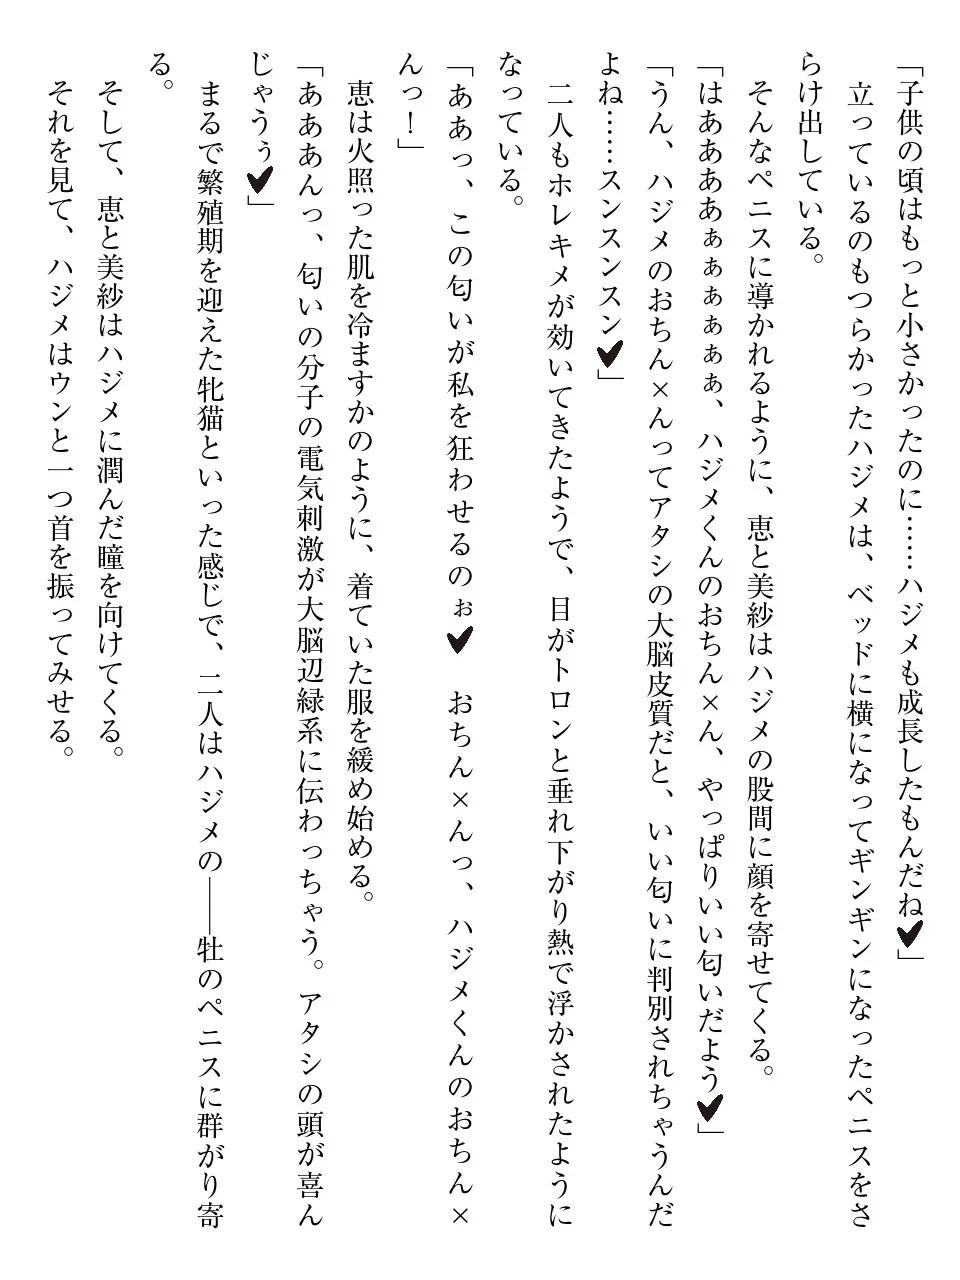 「子供の頃はもっと小さかったのに……ハジメも成長したもんだね♥」
立っているのもつらかったハジメは、ベッドに横になってギンギンになったペニスをさ
らけ出している。
そんなペニスに導かれるように、恵と美紗はハジメの股間に顔を寄せてくる。
「はああああぁぁぁぁぁ、ハジメくんのおちん×ん、やっぱりいい匂いだよう♥」
「うん、ハジメのおちん×んってアタシの大脳皮質だと、いい匂いに判別されちゃうんだ
よね……スンスンスン♥」
二人もホレキメが効いてきたようで、目がトロンと垂れ下がり熱で浮かされたように
なっている。
「ああっ、この匂いが私を狂わせるのぉ♥　おちん×んっ、ハジメくんのおちん×
んっ！」
恵は火照った肌を冷ますかのように、着ていた服を緩め始める。
「あああんっ、匂いの分子の電気刺激が大脳辺緑系に伝わっちゃう。アタシの頭が喜ん
じゃうぅ♥」
まるで繁殖期を迎えた牝猫といった感じで、二人はハジメの――牡のペニスに群がり寄
る。
そして、恵と美紗はハジメに潤んだ瞳を向けてくる。
それを見て、ハジメはウンと一つ首を振ってみせる。